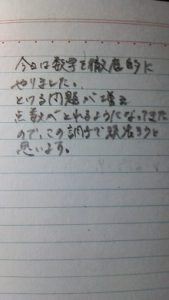 今日は数学を徹底的に
やりました。
とける問題が増え
点数がとれるようになってきた
ので、この調子で頑張ろうと
思います。